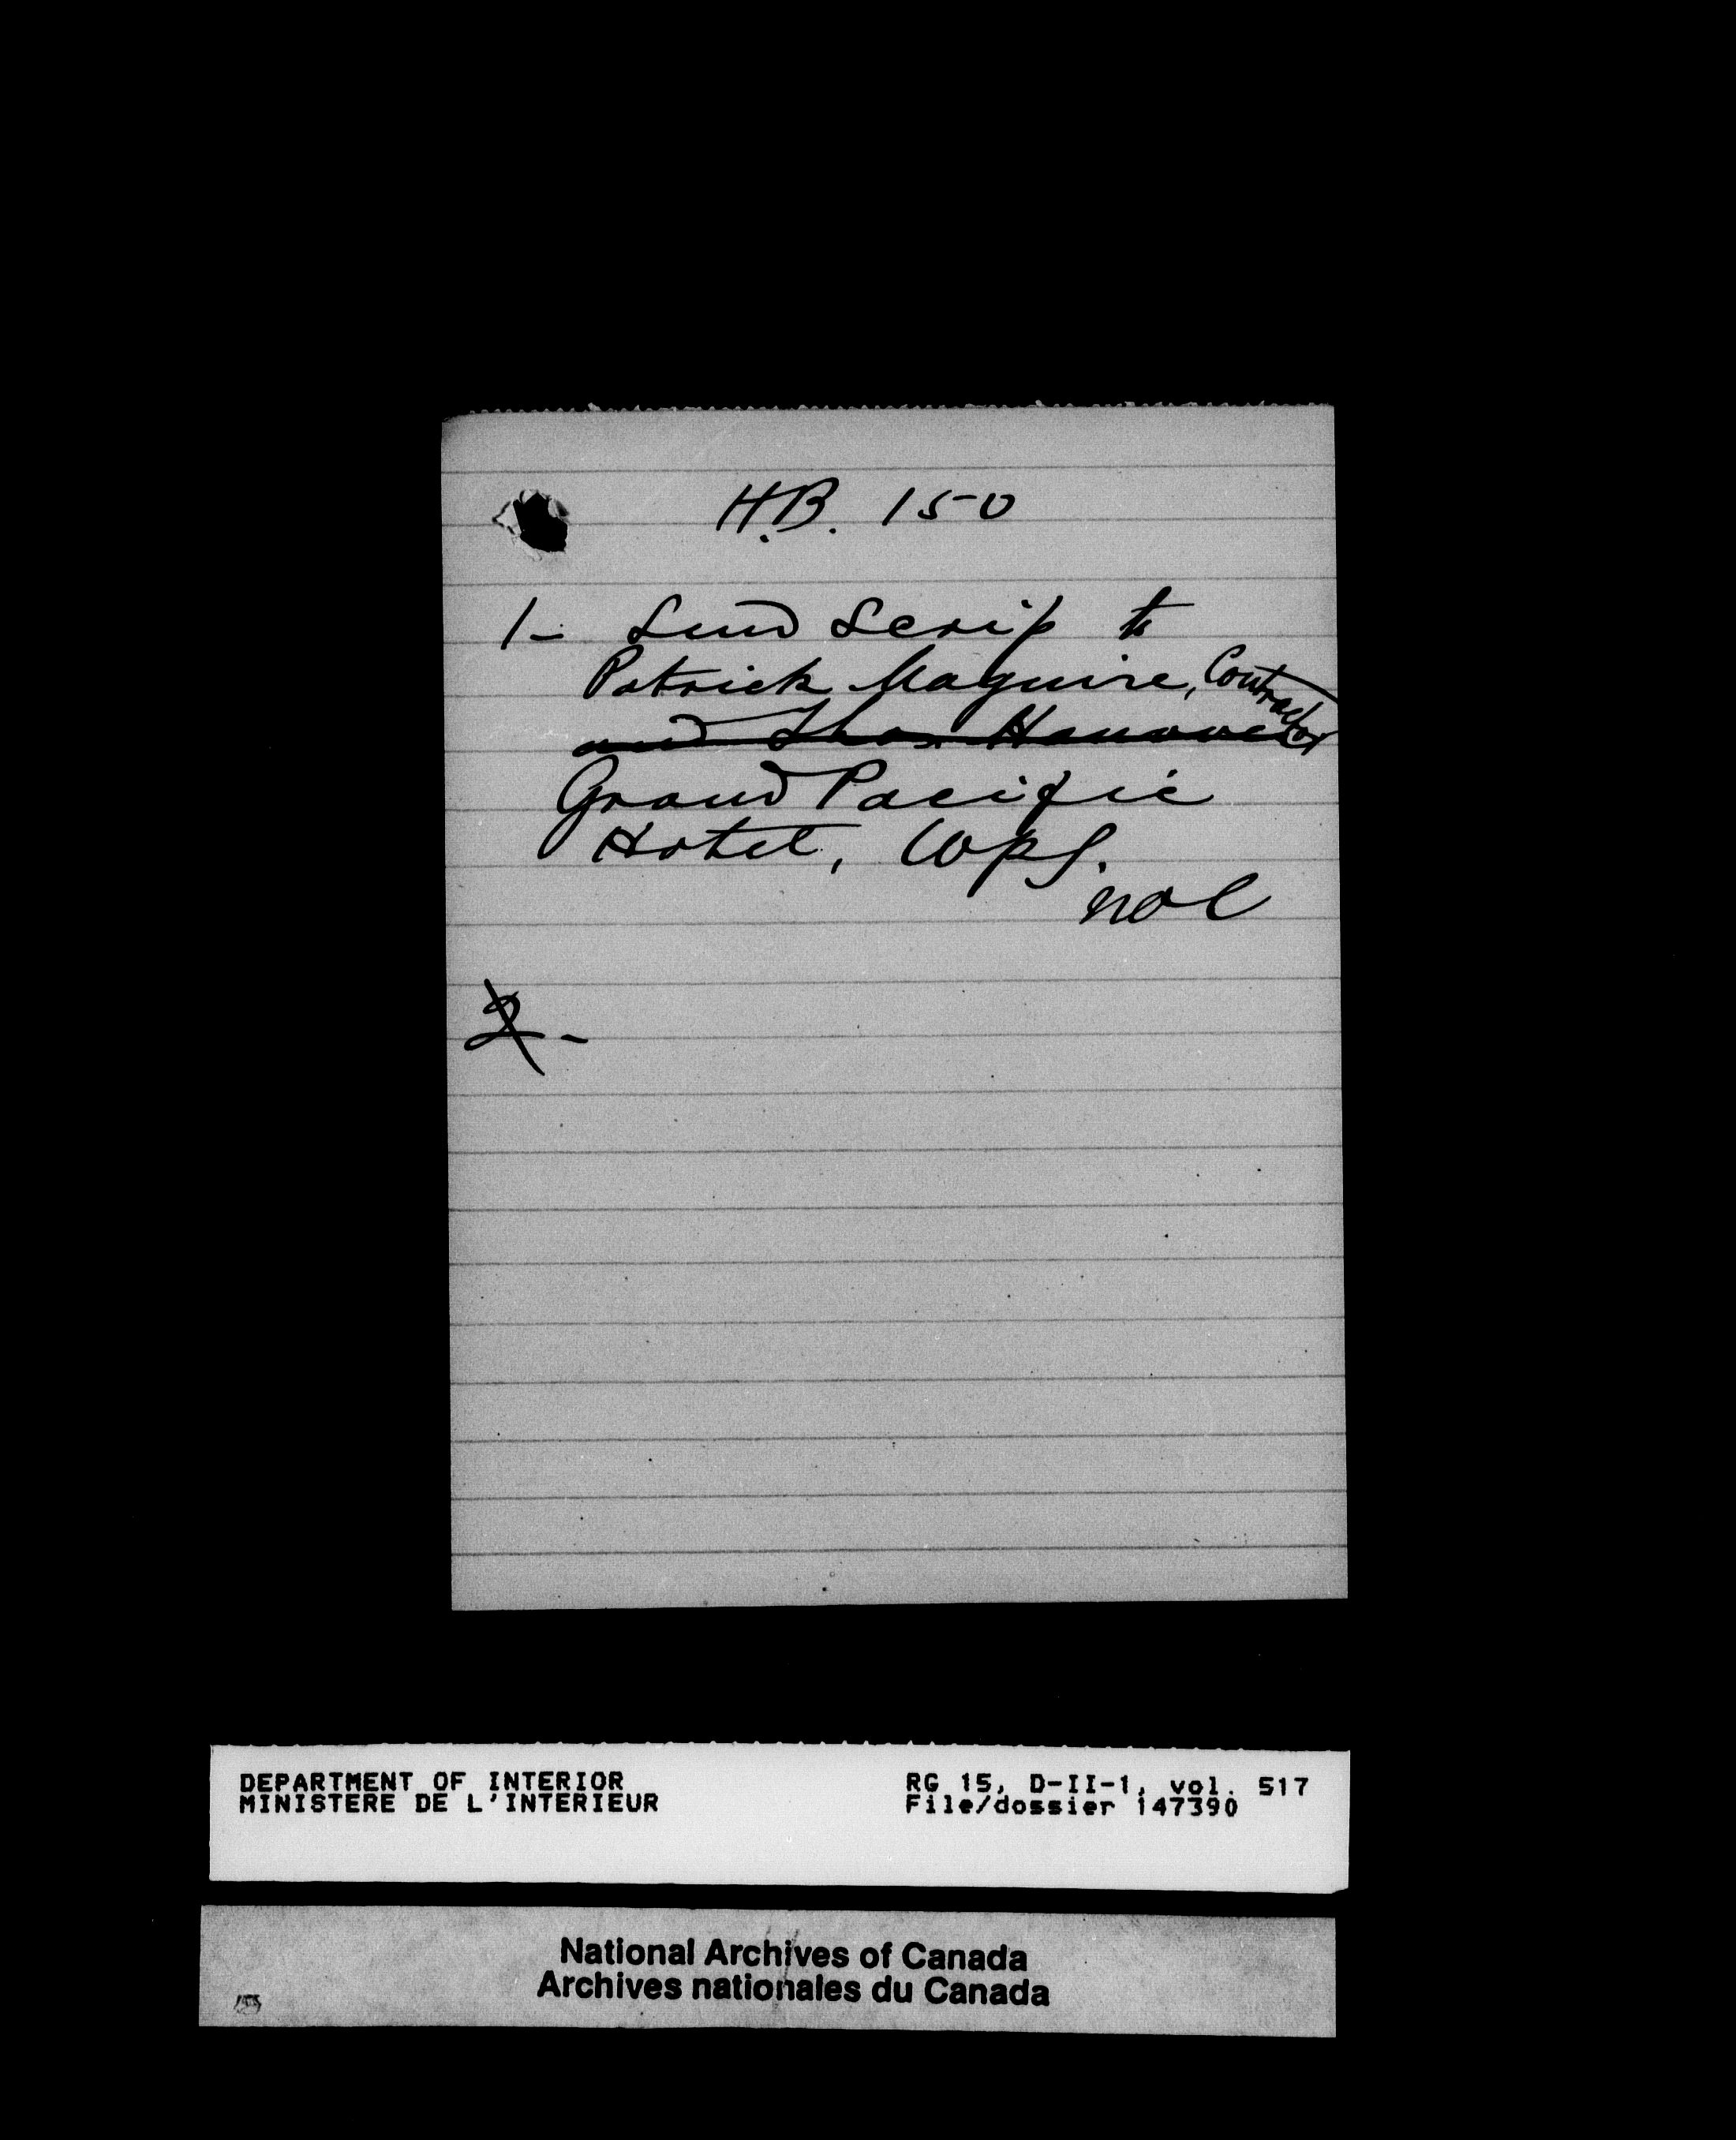 H.B. 150
1- Send Scrip to
Patrick Maguire, Contractor
and Thos. Hanover
Grand Pacific
Hotel, Wpg.
2-
DEPARTMENT OF INTERIOR
MINISTERE DE L'INTERIEUR
RG 15, D-II-1, vol. 517
File/dossier 147390
National Archives of Canada
Archives nationales du Canada